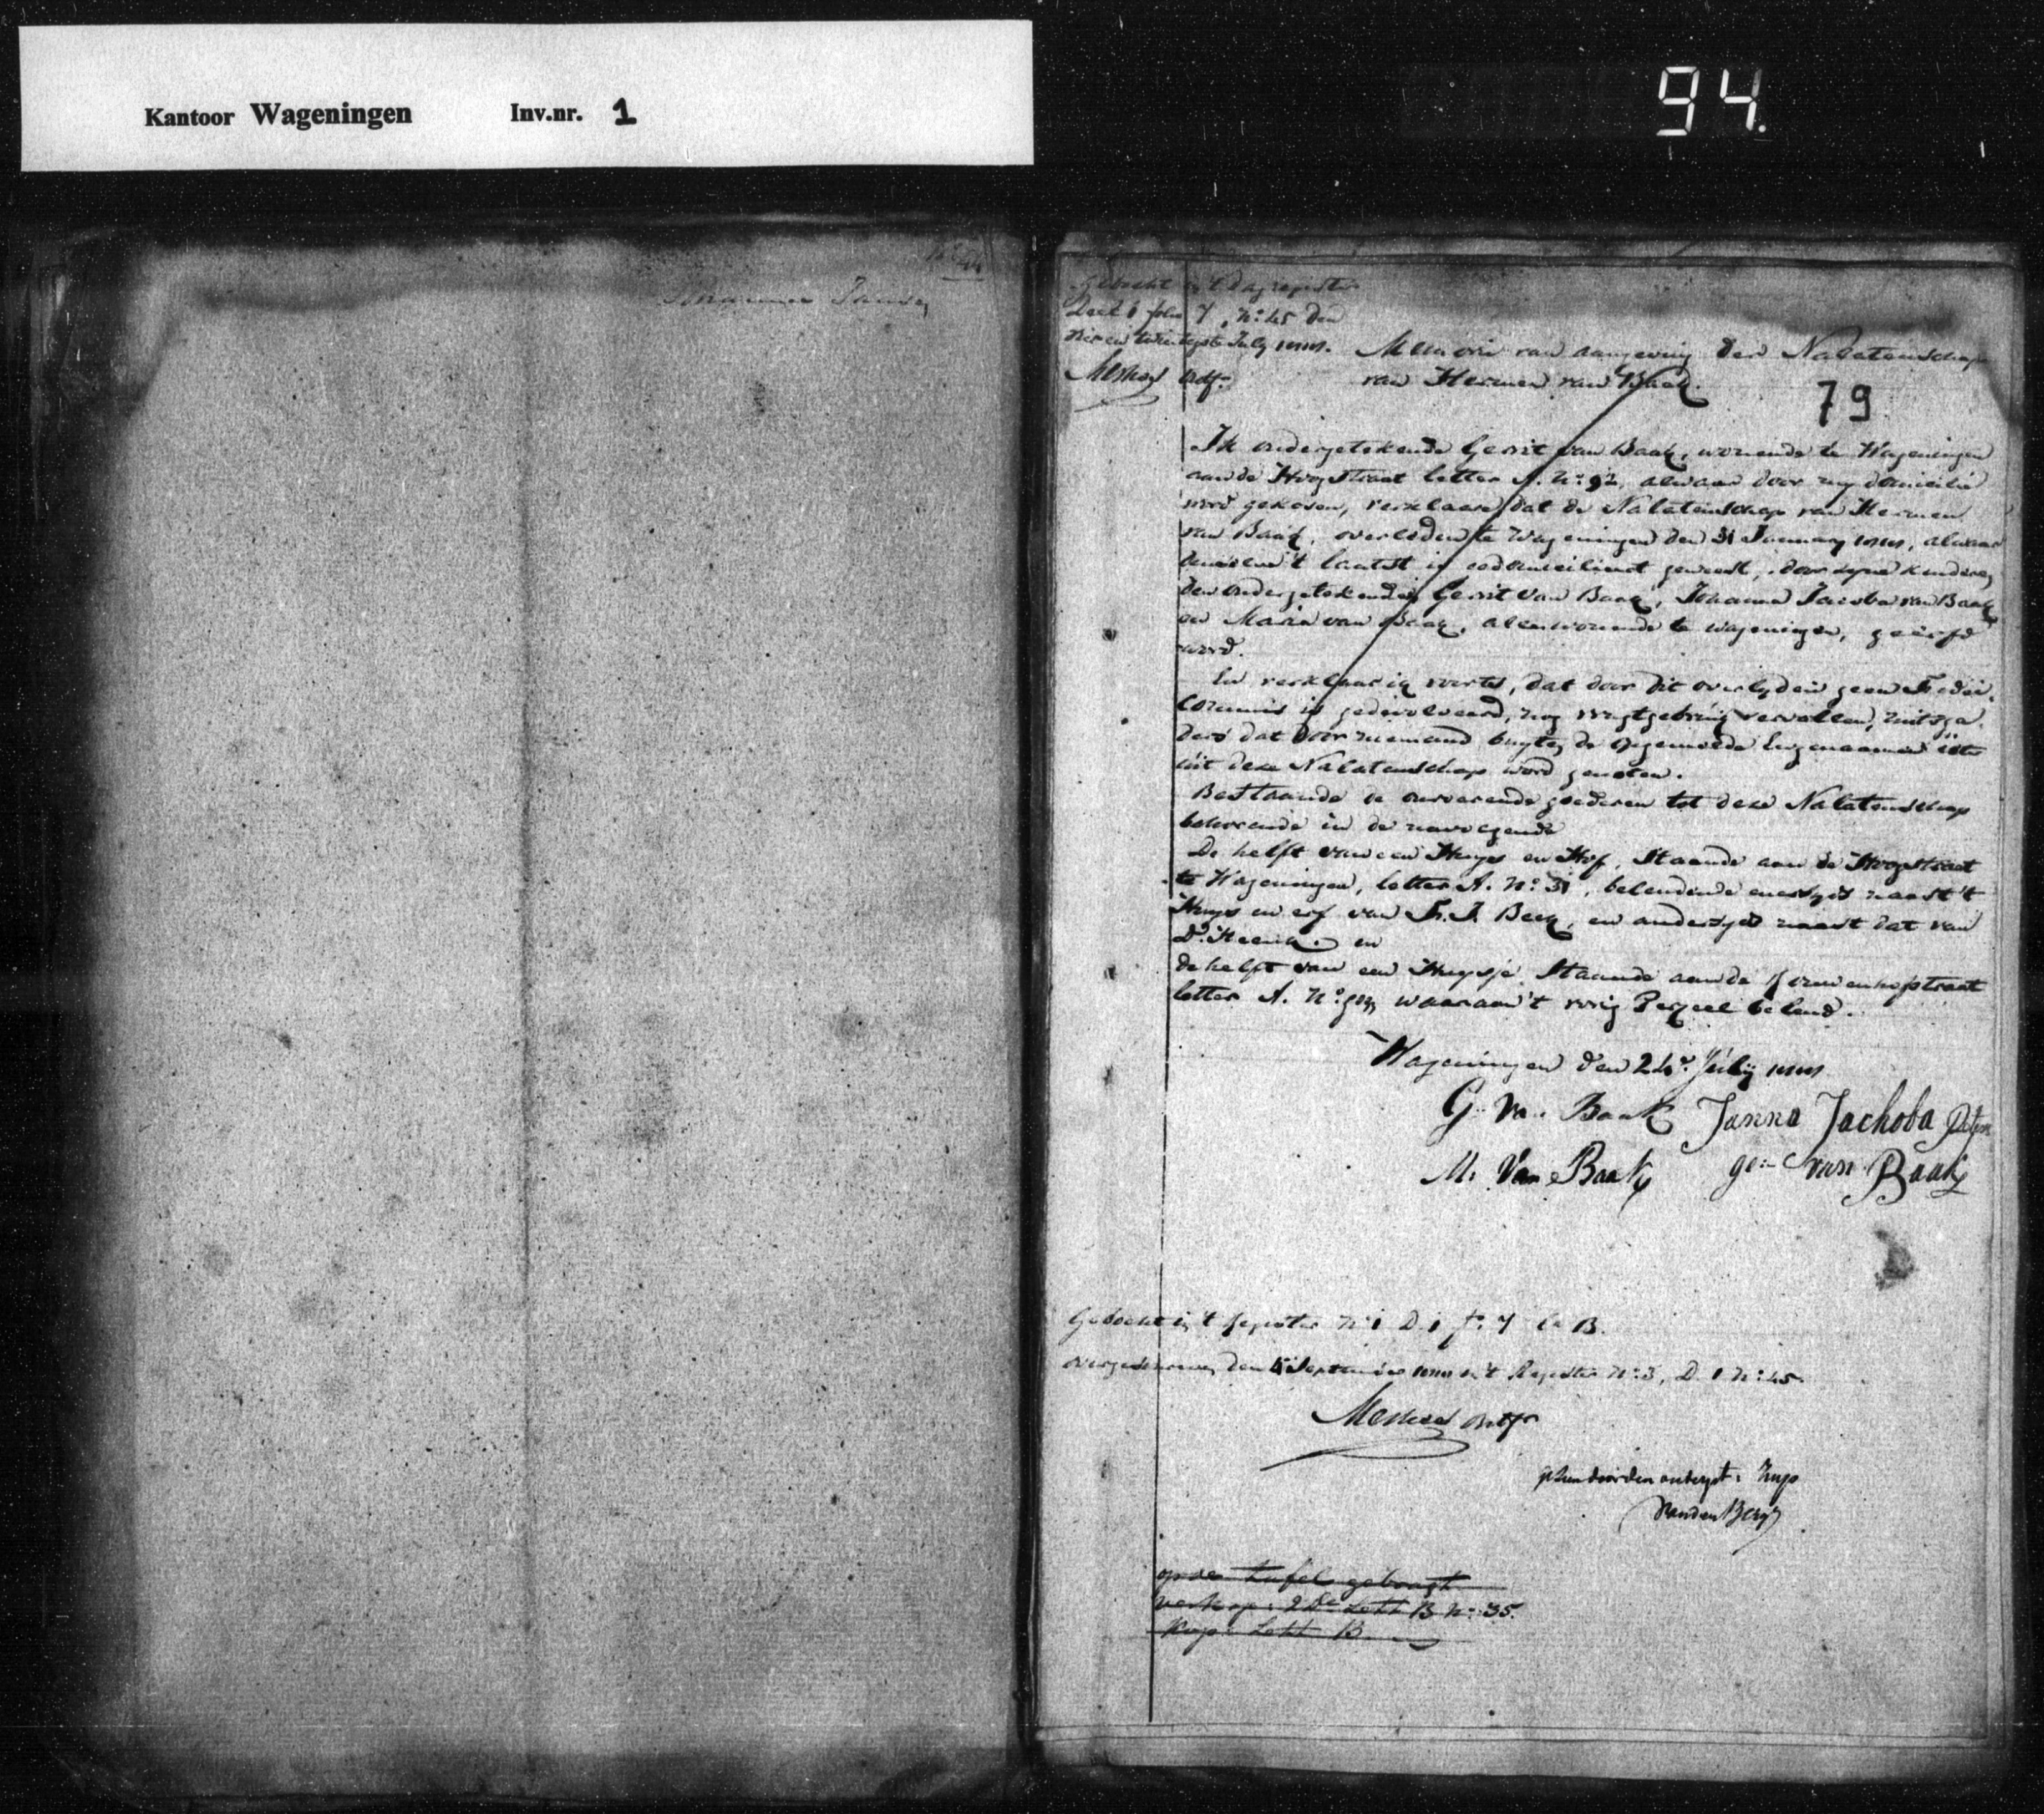 Kantoor Wageningen Inv.nr. 1
94.
Johannes Jansen
Geboekt in 't Dagregister
Deel 1 folio 7, No: 45 den
vier en twintigste July
Memorie van aangeving der Nalatenschap
van Hermen van Baak.
79
Ik ondergetekende Gerrit van Baak, wonende te Wageningen
aan de Hoogstraat letter A. No: 92, alwaar door my domicilie
word gekosen, verklaare dat de Nalatenschap van Hermen
van Baak, overleden te Wageningen den 31 January, alwaar
denzelve 't laatst is gedomicilieert geweest, door zyne kinderen
den ondergetekenden Gerrit van Baak, Johanna Jacoba van Baak
en Maria van Baak, allen wonende te Wageningen, geërfd
word.
En verklaar ik voorts, dat door dit overlyden geen Fidei-
Commis is gedevolveerd, nog vrugtgebruik vervallen, mitsga-
ders dat door niemand buyten de opgemelde Erfgenaamen iets
uit deze Nalatenschap word genoten.
Bestaande de onroerende goederen tot deze Nalatenschap
behorende in de navolgende
De helft van een Huys en Hof, Staande aan de Hoogstraat
te Wageningen, letter A. No: 31, belendende enerzyds naast 't
Huys en erf van J. Beek, en anderzyds naast dat van
en
de helft van een Huysje Staande aan de
letter A. No: waaraan 't vorig Perzeel belend.
Wageningen den 24e July
G. V. Baak Janna Jachoba
M. Van Baak ge:- van Baak
Geboekt in 't Register No 1 D. 1 fo. 7 La B.
overgenomen den September in 't Register No: 3, D. 1 No: 45.
Van den Berg
op de tafel gebragt
verkop: 2 De Lett B No: 35.
Kop: Lett B